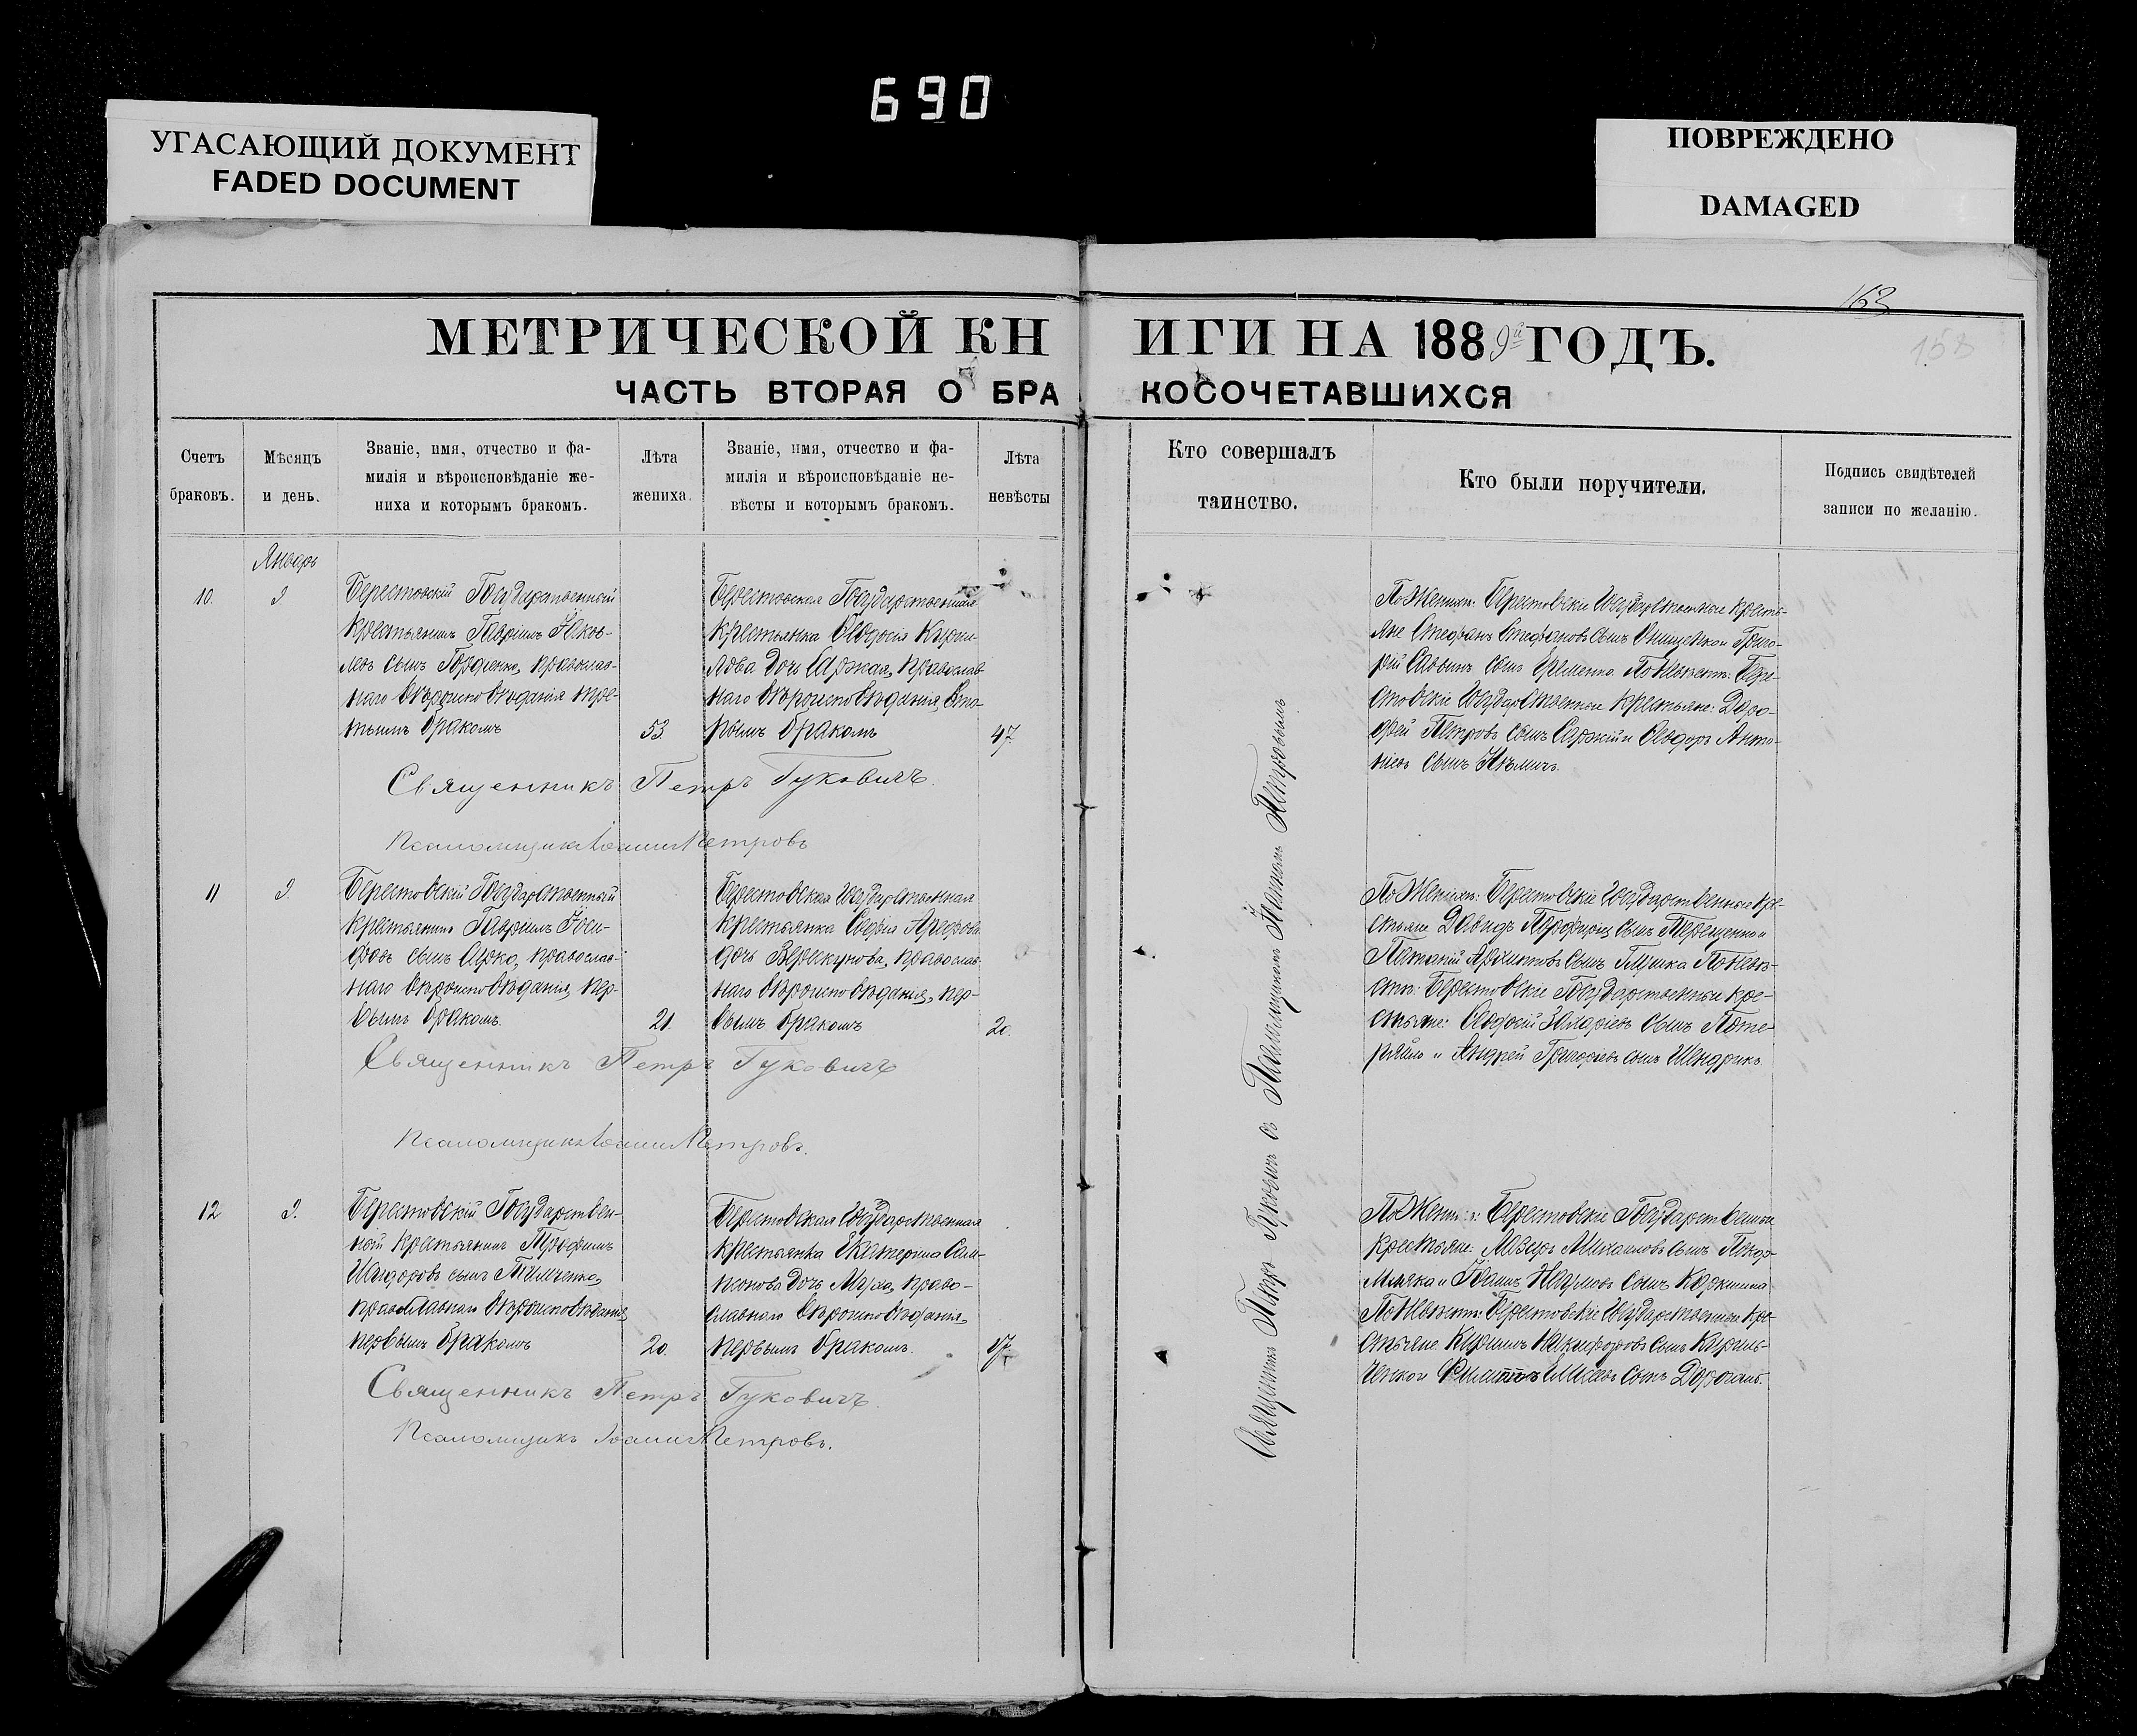 690
УГАСАЮЩИЙ ДОКУМЕНТ
FADED DOCUMENT
ПОВРЕЖДЕНО
DAMAGED
163
158
МЕТРИЧЕСКОЙ КНИГИ НА 1889й ГОДЪ.
ЧАСТЬ ВТОРАЯ О БРАКОСОЧЕТАВШИХСЯ
Счетъ
браковъ.
Мѣсяцъ
и день.
Званіе, имя, отчество и фа-
милія и вѣроисповѣданіе же-
ниха и которымъ бракомъ.
Лѣта
жениха.
Званіе, имя, отчество и фа-
милія и вѣроисповѣданіе не-
вѣсты и которымъ бракомъ.
Лѣта
невѣсты
Кто совершалъ
таинство.
Кто были поручители.
Подпись свидѣтелей
записи по желанію.
Январь
10.
9.
Берестовскій Государственный
крестьянинъ Гавріилъ Яков-
левъ сынъ Гордіенко, православ-
наго вѣроисповѣданія тре-
тьимъ бракомъ
53.
Берестовская Государственная
крестьянка Ѳеодосія Кирил-
лова дочь Саржая, православ-
наго вѣроисповѣданія, вто-
рымъ бракомъ
47.
По Женихѣ: Берестовскіе Государственные кресть-
яне Стефанъ Стефановъ сынъ Онищенко и Григо-
рій Саввинъ сынъ Еременко. По Невѣстѣ: Бере-
стовскіе Государственные крестьяне: Доро-
фей Петровъ сынъ Саржій и Ѳеодоръ Анто-
ніевъ сынъ Нѣмичъ.
Священникъ Петръ Гуковичъ.
Псаломщикъ Іоаннъ Петровъ
11
9.
Берестовскій Государственный
крестьянинъ Гавріилъ Іоси-
фовъ сынъ Сірко, православ-
наго вѣроисповѣданія, пер-
вымъ бракомъ.
21.
Берестовская Государственная
крестьянка Софія Арефова
дочь Верекунова, православ-
наго вѣроисповѣданія, пер-
вымъ бракомъ
20.
По Женихѣ: Берестовскіе Государственные кре-
стьяне Давидъ Порфиріевъ сынъ Терещенко и
сынъ Глушка По Невѣ-
стѣ: Берестовскіе Государственные кре-
стьяне: Ѳеодосій Захаріевъ сынъ Поте-
ряйло и Андрей Григоріевъ сынъ Шендрикъ
Священникъ Петръ Гуковичъ
Псаломщикъ Іоаннъ Петровъ.
12
9.
Берестовскій Государствен-
ный крестьянинъ Трофимъ
Исидоровъ сынъ Тимченко,
православнаго вѣроисповѣданія,
первымъ бракомъ
20.
Берестовская Государственная
крестьянка Екатерина Сам-
сонова дочь Муха, право-
славнаго вѣроисповѣданія,
первымъ бракомъ.
17.
По Женихѣ: Берестовскіе Государственные
крестьяне: Лазарь Михаиловъ сынъ
и Іоаннъ Наумовъ сынъ
По Невѣстѣ: Берестовскіе Государственные кре-
стьяне Кириллъ Никифоровъ сынъ Кириль-
ченко и Филиппъ сынъ
Священникъ Петръ Гуковичъ.
Псаломщикъ Іоаннъ Петровъ.
Священникъ Петръ Гуковичъ съ Псаломщикомъ Іоанномъ Петровымъ